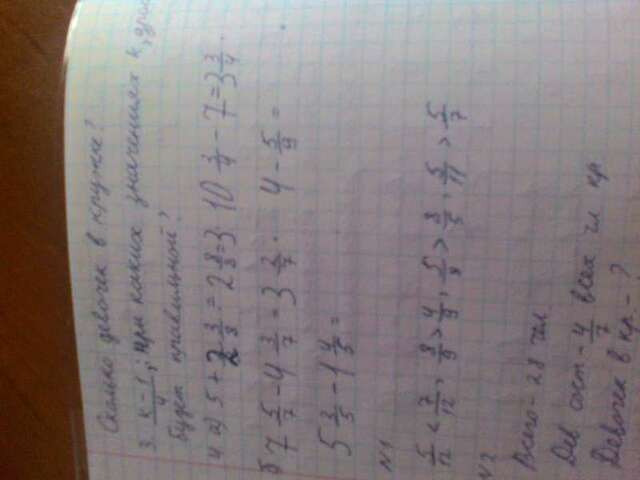 Сколько девочек в кружке?
3. k-1/4; при каких значениях k, дро
будет правильной?
4 а) 5 + 2 3/8 = 2 8/8 = 3. 10 3/4 - 7 = 3 3/4.
б 7 5/7 - 4 3/7 = 3 2/7. 4 - 5/9 =
5 3/5 - 1 4/5 =
N1
5/12 < 7/12, 8/9 > 4/9, 5/8 > 8/5, 5/11 > 5/7
N2
Всего - 28 чел.
Дев сост - 4/7 всех чл кр
Девочек в кр. - ?